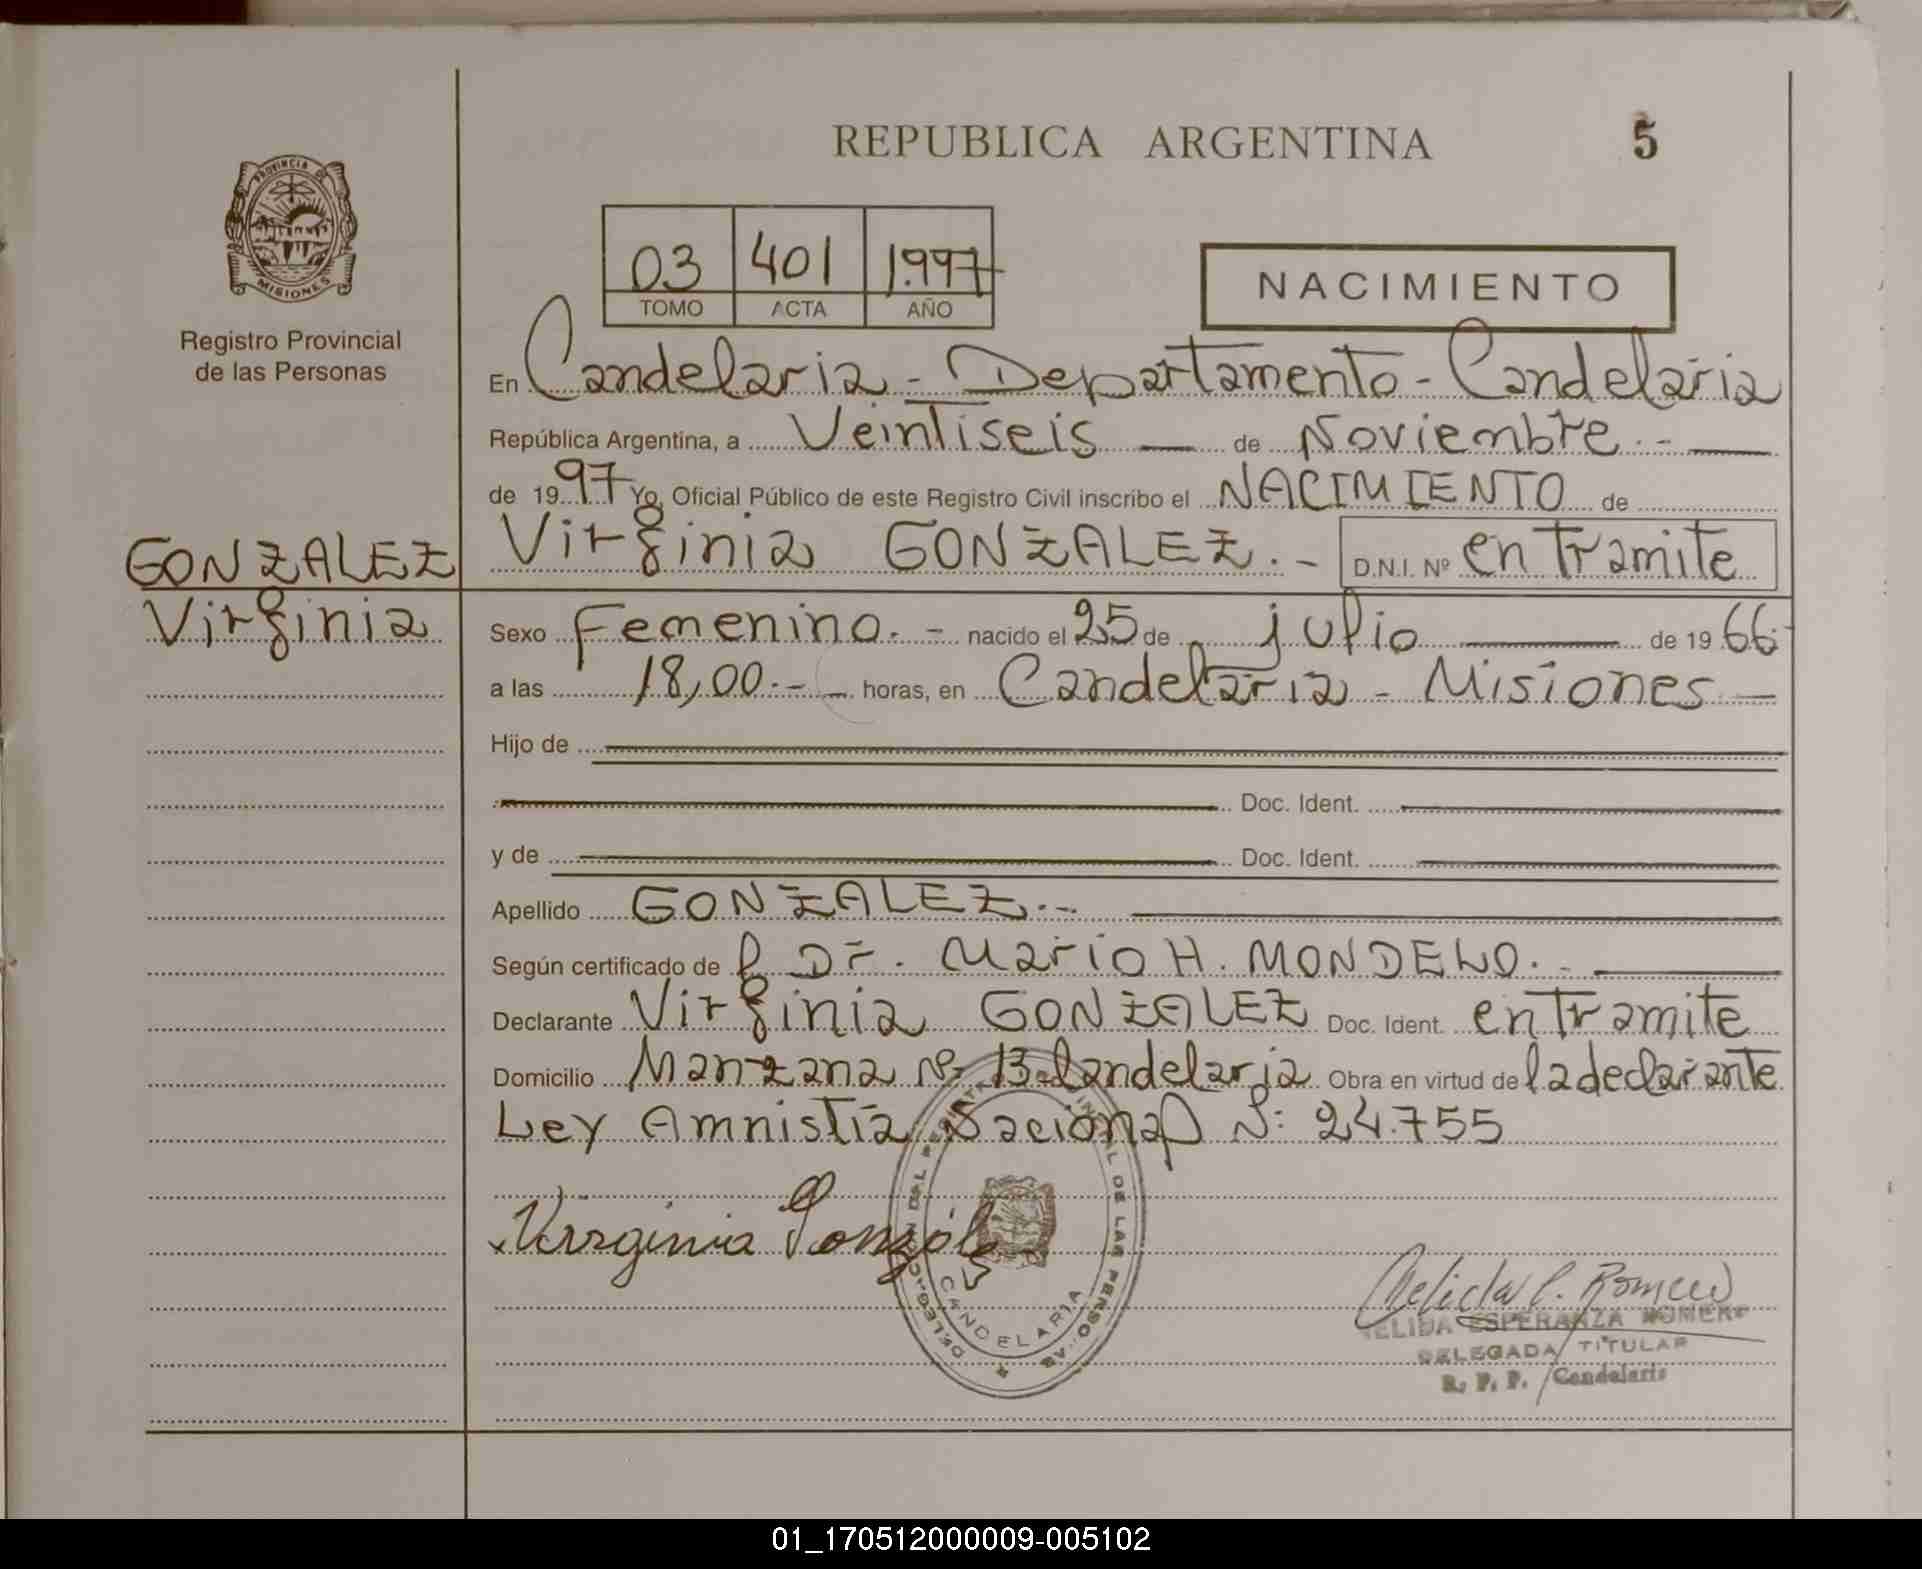 REPUBLICA ARGENTINA
5
PROVINCIA DE
MISIONES
Registro Provincial
de las Personas
03 401 1.997
TOMO ACTA AÑO
NACIMIENTO
En Candelaria - Departamento - Candelaria
República Argentina, a Veintiseis de Noviembre.-
de 1997 Yo, Oficial Público de este Registro Civil inscribo el NACIMIENTO de
GONZALEZ
Virginia GONZALEZ.- D.N.I. Nº en Tramite
Virginia
Sexo Femenino.- nacido el 25 de julio de 1966.-
a las 18,00.- horas, en Candelaria - Misiones
Hijo de
Doc. Ident.
y de Doc. Ident.
Apellido GONZALEZ.-
Según certificado de Dr. Mario H. MONDELO.-
Declarante Virginia GONZALEZ Doc. Ident. en Tramite
Domicilio Manzana Nº 13-Candelaria Obra en virtud de la declarante
Ley Amnistía Nacional Nº: 24.755
Virginia Gonzále
DELEGACION DEL REGISTRO PROVINCIAL DE LAS PERSONAS
CANDELARIA
Nelida E. Romero
NELIDA ESPERANZA ROMERO
DELEGADA TITULAR
R. P. P. Candelaria
01_170512000009-005102